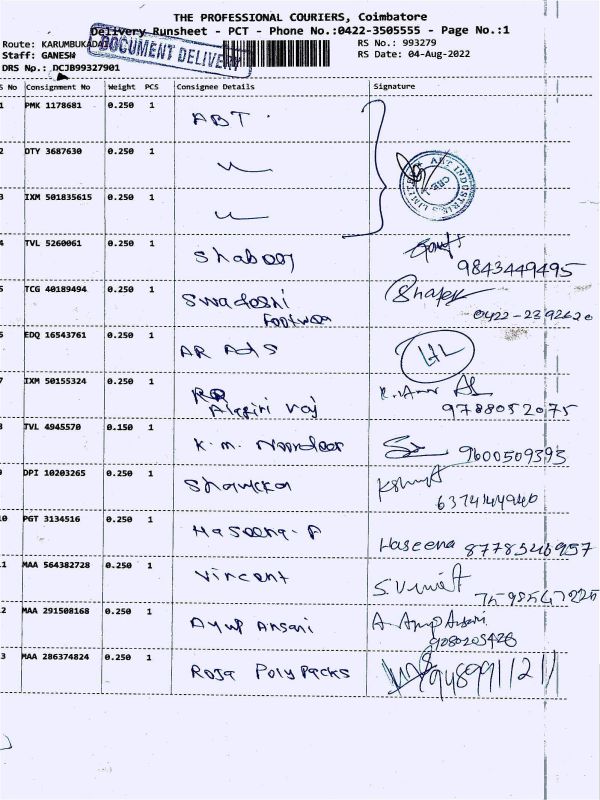 THE PROFESSIONAL COURIERS, Coimbatore
Delivery Runsheet - PCT - Phone No.:0422-3505555 - Page No.:1
Route: KARUMBUKADAI
RS No.: 993279
DOCUMENT DELIVERY
Staff: GANESH
RS Date: 04-Aug-2022
DRS No.: DCJB99327901
S No Consignment No Weight PCS Consignee Details Signature
1 PMK 1178681 0.250 1 ABT
2 DTY 3687630 0.250 1
ABT INDUSTRIES LIMITED CBE
3 IXM 501835615 0.250 1
4 TVL 5260061 0.250 1 Shabooj
9843449495
5 TCG 40189494 0.250 1 Swadoshi
Footwea
0422-2392620
6 EDQ 16543761 0.250 1 AR Ads
7 IXM 50155324 0.250 1
Alagiri raj
9788052075
8 TVL 4945570 0.150 1 K.m. Noordeen
9600509393
9 DPI 10203265 0.250 1 Shaukka
6374144940
10 PGT 3134516 0.250 1 Haseena.P
Haseena 8778546957
11 MAA 564382728 0.250 1 Vincent
S.Vincent
7598547225
12 MAA 291508168 0.250 1 Ayup Ansari
A Ayup Ansari
9080205426
13 MAA 286374824 0.250 1 Roja Poly packs
9489911211